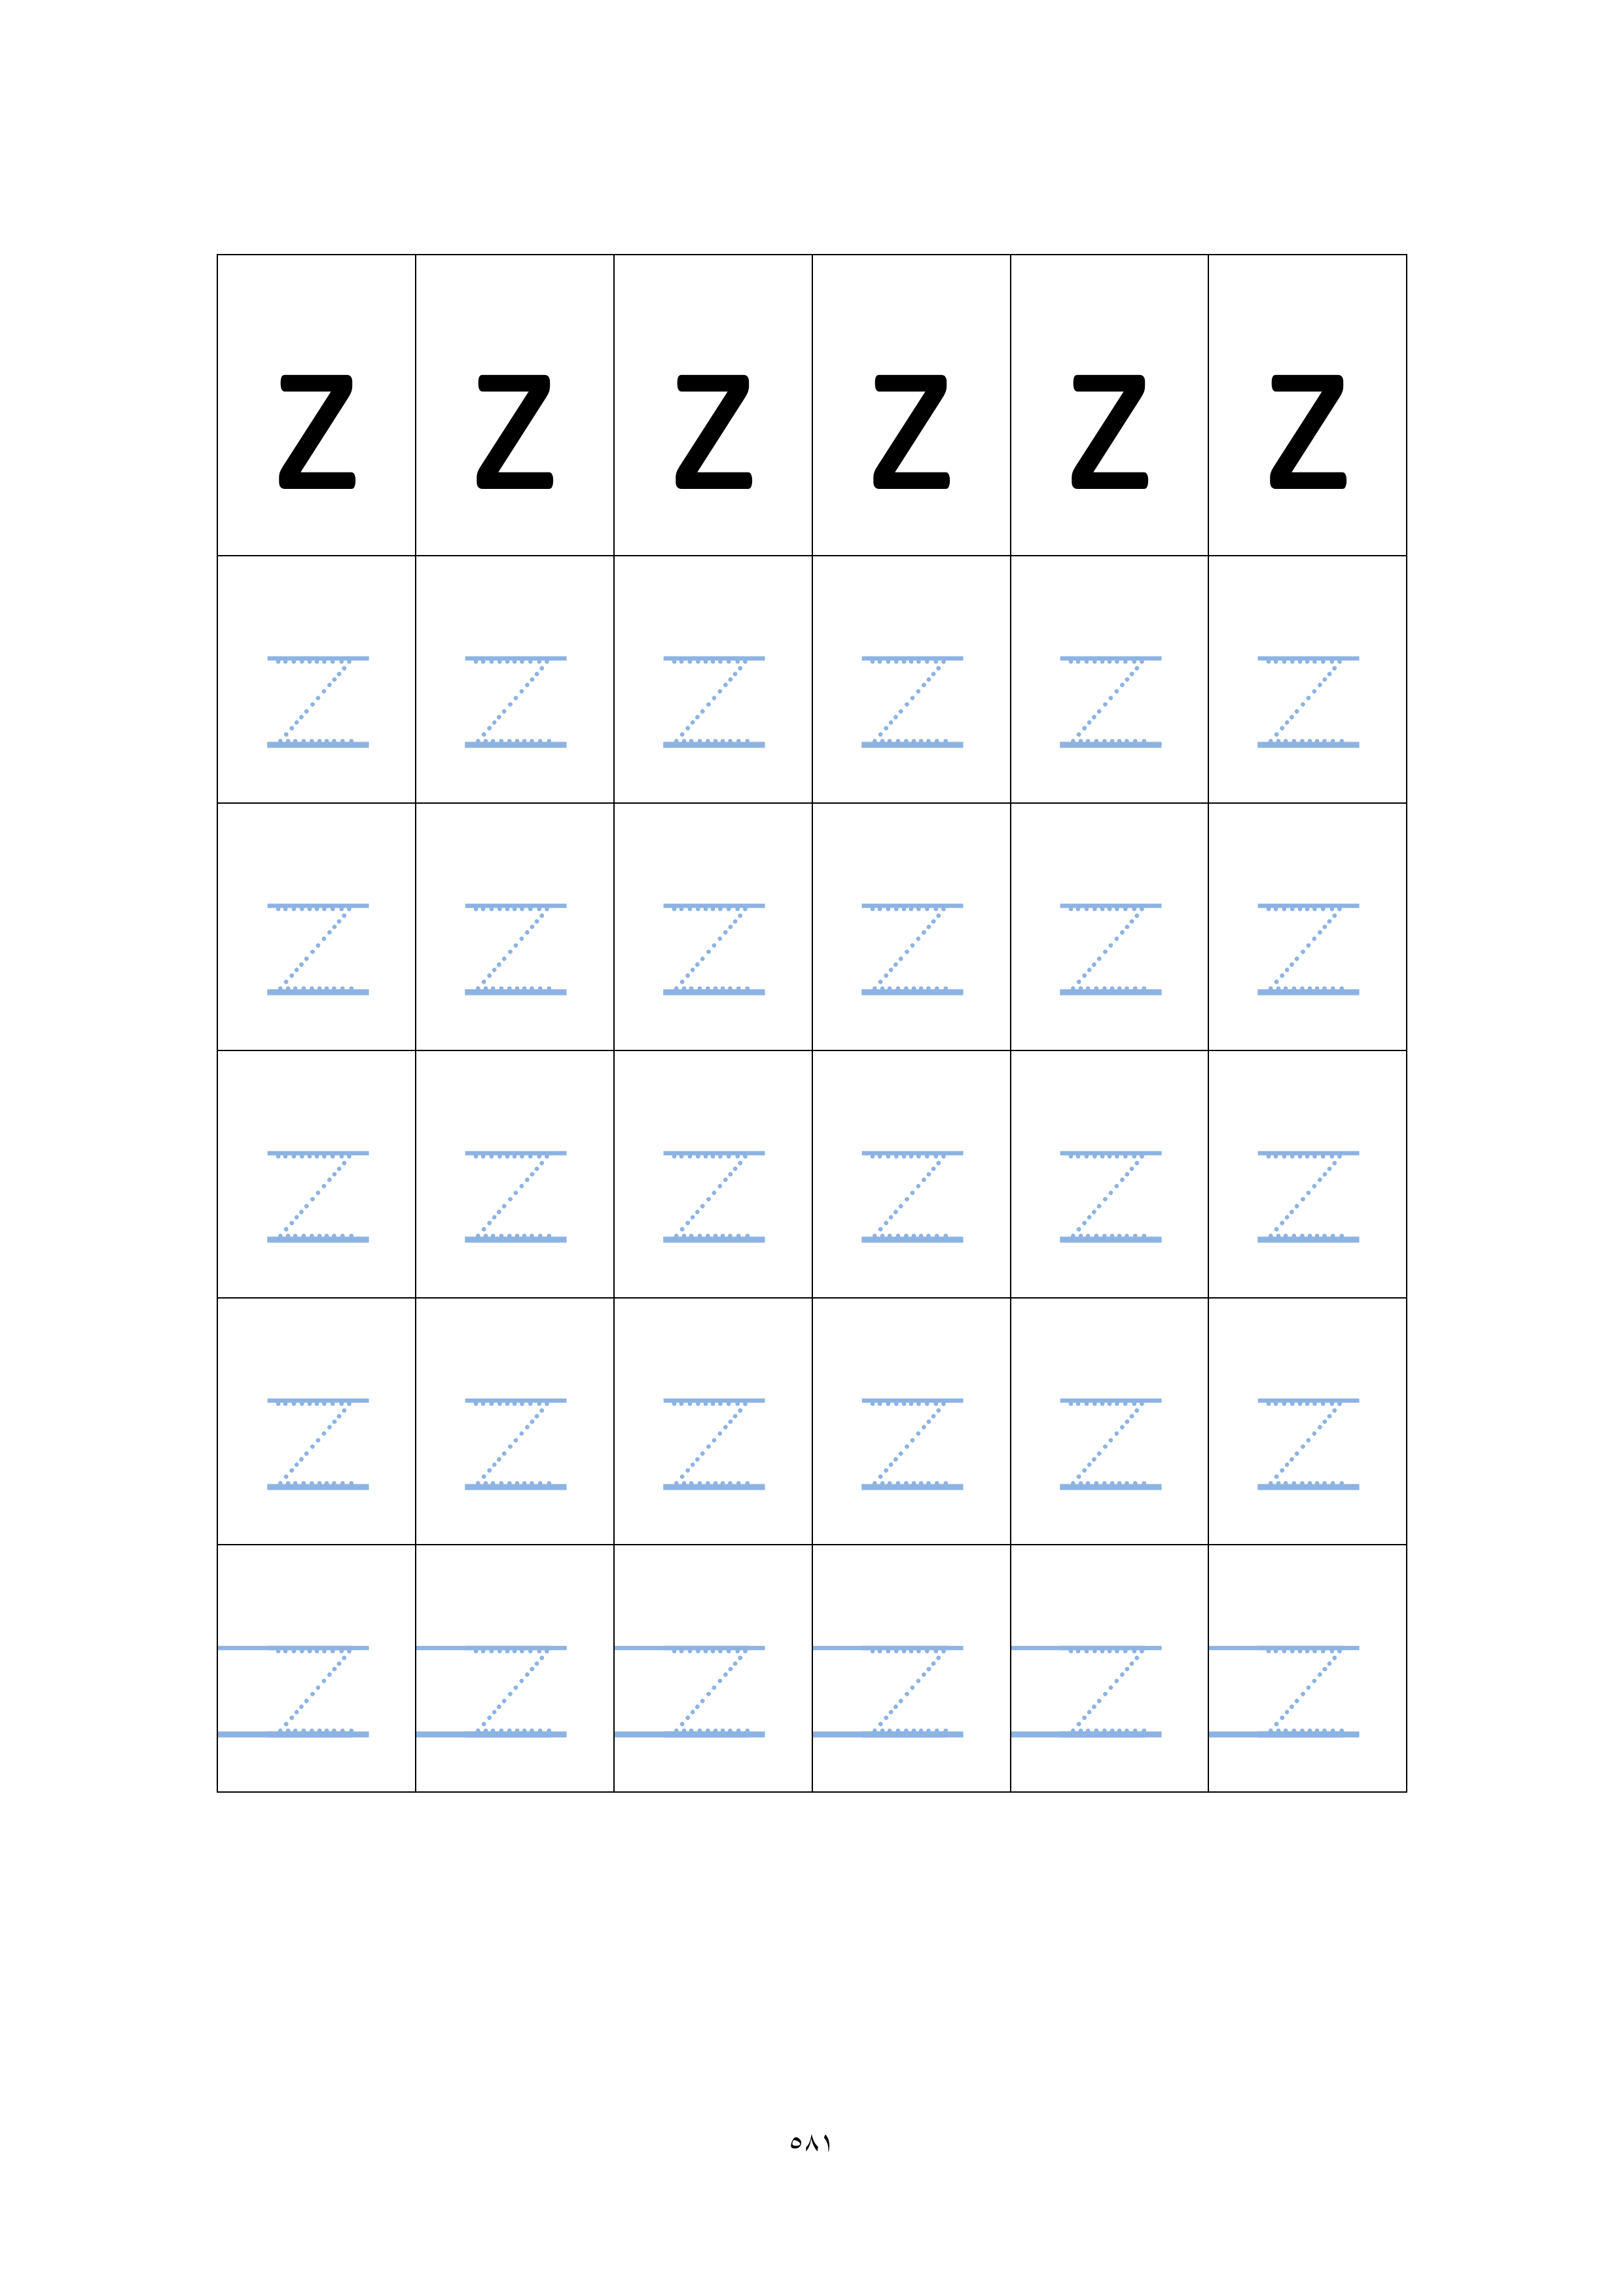 Z Z Z Z Z Z
Z Z Z Z Z Z
Z Z Z Z Z Z
Z Z Z Z Z Z
Z Z Z Z Z Z
Z Z Z Z Z Z
٥٨١